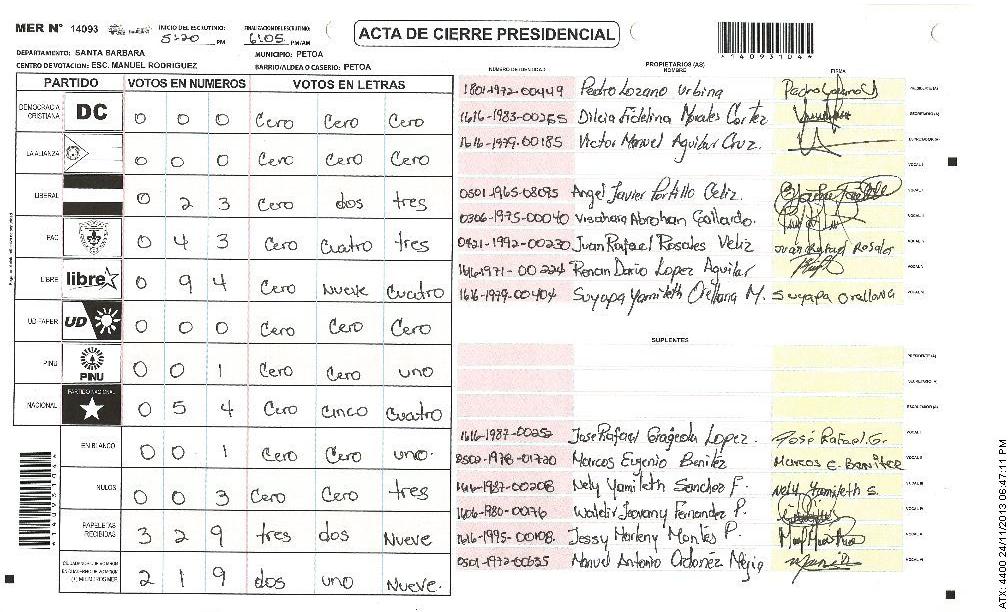 MER N° 14093
INICIO DEL ESCRUTINIO: 5:20 PM
FINALIZACION DEL ESCRUTINIO: 6:05 PM/AM
ACTA DE CIERRE PRESIDENCIAL
*14093104*
DEPARTAMENTO: SANTA BARBARA
MUNICIPIO: PETOA
CENTRO DE VOTACION: ESC. MANUEL RODRIGUEZ
BARRIO/ALDEA O CASERIO: PETOA
PARTIDO VOTOS EN NUMEROS VOTOS EN LETRAS
DEMOCRACIA CRISTIANA DC 0 0 0 Cero Cero Cero
LA ALIANZA 0 0 0 Cero Cero Cero
LIBERAL 0 2 3 Cero dos tres
PAC 0 4 3 Cero Cuatro tres
LIBRE libre 0 9 4 Cero Nueve Cuatro
UD-FAPER UD 0 0 0 Cero Cero Cero
PINU PINU 0 0 1 Cero Cero uno
NACIONAL PARTIDO NACIONAL 0 5 4 Cero Cinco Cuatro
EN BLANCO 0 0 1 Cero Cero uno.
NULOS 0 0 3 Cero Cero tres
PAPELETAS RECIBIDAS 3 2 9 tres dos Nueve
2 1 9 dos uno Nueve.
*14093104*
PROPIETARIOS (AS)
NUMERO DE IDENTIDAD NOMBRE FIRMA
1801-1972-00449 Pedro Lozano Urbina PRESIDENTE (A)
1616-1983-00265 Dilcia Fidelina Morales Cortez SECRETARIO (A)
1616-1979-00185 Victor Manuel Aguilar Cruz. ESCRUTADOR (A)
VOCAL I
0501-1965-08095 Angel Javier Portillo Celiz VOCAL II
0306-1975-00040 Abrahan Gallardo. VOCAL III
0421-1992-00230 Juan Rafael Rosales Veliz Juan Rafael Rosales VOCAL IV
1616-1971-00224 Renan Dario Lopez Aguilar VOCAL V
1616-1979-00404 Suyapa Yamileth Orellana M. Suyapa Orellana
SUPLENTES
PRESIDENTE (A)
SECRETARIO (A)
ESCRUTADOR (A)
1616-1987-00252 Jose Rafael Grageda Lopez. José Rafael G. VOCAL I
0502-1978-01720 Marcos Eugenio Benitez Marcos E. Benitez VOCAL II
1616-1987-00208 Nely Yamileth Sanchez F. Nely Yamileth S. VOCAL III
1606-980-00176 Waldir Jeovany Fernandez P. VOCAL IV
1616-1995-00108. Jessy Marleny Montes P. VOCAL V
0501-1972-00635 Manuel Antonio Ordoñez Mejia
ATX: 4400 24/11/2013 06:47:11 PM